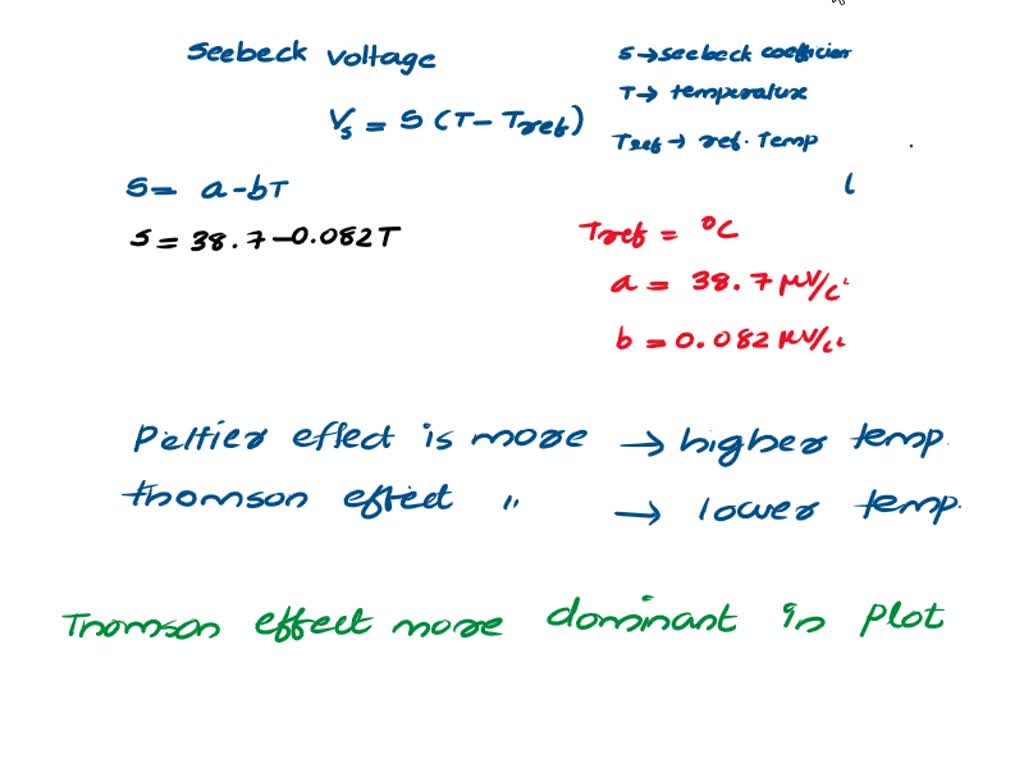 Seebeck voltage
S → seebeck coefficien
T → temperature
Vs = S (T - Tref)
Tref → ref. Temp
S = a - bT
S = 38.7 - 0.082T
Tref = 0C
a = 38.7 μV/c
b = 0.082 μV/c²
Peltier effect is more → higher temp.
thomson effect " → lower temp.
Thomson effect more dominant in plot